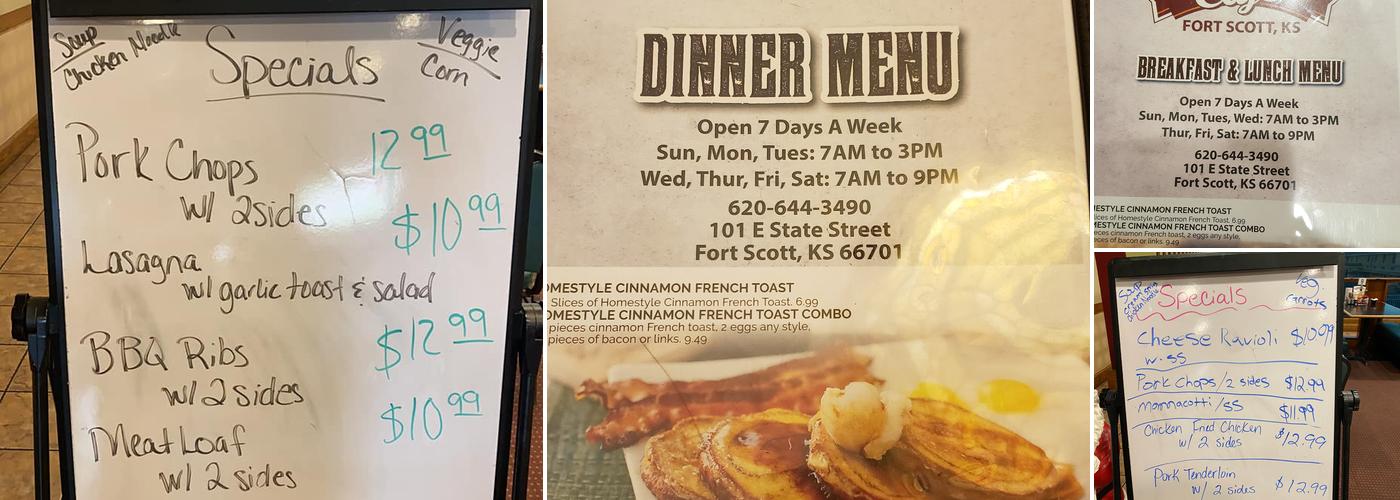 Soup
Chicken Noodle
Specials
Veggie
Corn
Pork Chops 12 99
w/ 2 sides
$10 99
Lasagna
w/ garlic toast & salad
$12 99
BBQ Ribs
w/ 2 sides
$10 99
Meat Loaf
w/ 2 sides
DINNER MENU
Open 7 Days A Week
Sun, Mon, Tues: 7AM to 3PM
Wed, Thur, Fri, Sat: 7AM to 9PM
620-644-3490
101 E State Street
Fort Scott, KS 66701
OMESTYLE CINNAMON FRENCH TOAST
Slices of Homestyle Cinnamon French Toast. 6.99
OMESTYLE CINNAMON FRENCH TOAST COMBO
pieces cinnamon French toast, 2 eggs any style,
pieces of bacon or links. 9.49
FORT SCOTT, KS
BREAKFAST & LUNCH MENU
Open 7 Days A Week
Sun, Mon, Tues, Wed: 7AM to 3PM
Thur, Fri, Sat: 7AM to 9PM
620-644-3490
101 E State Street
Fort Scott, KS 66701
MESTYLE CINNAMON FRENCH TOAST
lices of Homestyle Cinnamon French Toast. 6.99
MESTYLE CINNAMON FRENCH TOAST COMBO
ieces cinnamon French toast, 2 eggs any style,
eces of bacon or links. 9.49
Soup
Chicken Noodle
Specials
Veg.
Carrots
Cheese Ravioli $10.99
w. SS
Pork Chops / 2 sides $12.99
Mannacotti / SS $11.99
Chicken Fried Chicken $12.99
w/ 2 sides
Pork Tenderloin
w/ 2 sides $12.99